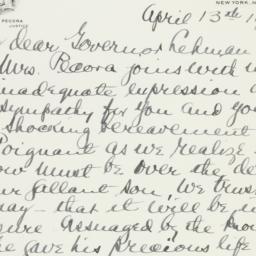 NEW YORK, N
PECORA
JUSTICE
April 13th 1
dear Governor Lehman
Mrs. Pecora joins with m
inadequate expression o
sympathy for you and yo
shocking bereavement
Poignant as we realize
ow must be over the de
ur gallant son, we trus
ray - that it will be m
sure assuaged by the kno
he gave his precious life